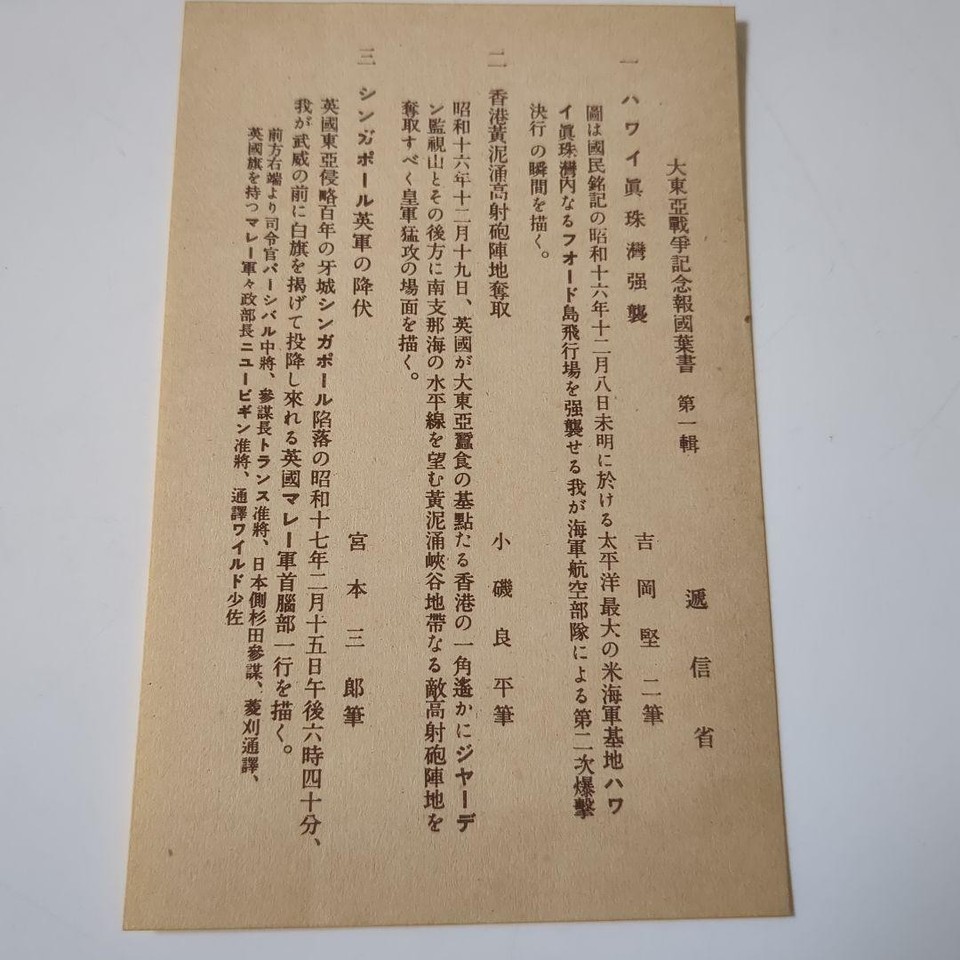 大東亞戰爭記念報國葉書　第一輯
遞信省
一　ハワイ眞珠灣强襲　吉岡堅二筆
圖は國民銘記の昭和十六年十二月八日未明に於ける太平洋最大の米海軍基地ハワ
イ眞珠灣內なるフオード島飛行場を强襲せる我が海軍航空部隊による第二次爆擊
決行の瞬間を描く。
二　香港黃泥涌高射砲陣地奪取　小磯良平筆
昭和十六年十二月十九日、英國が大東亞蠶食の基點たる香港の一角遙かにジヤーデ
ン監視山とその後方に南支那海の水平線を望む黃泥涌峽谷地帶なる敵高射砲陣地を
奪取すべく皇軍猛攻の場面を描く。
三　シンガポール英軍の降伏　宮本三郎筆
英國東亞侵略百年の牙城シンガポール陷落の昭和十七年二月十五日午後六時四十分、
我が武威の前に白旗を揭げて投降し來れる英國マレー軍首腦部一行を描く。
前方右端より司令官パーシバル中將、參謀長トランス准將、日本側杉田參謀、菱刈通譯、
英國旗を持つマレー軍々政部長ニユービギン准將、通譯ワイルド少佐